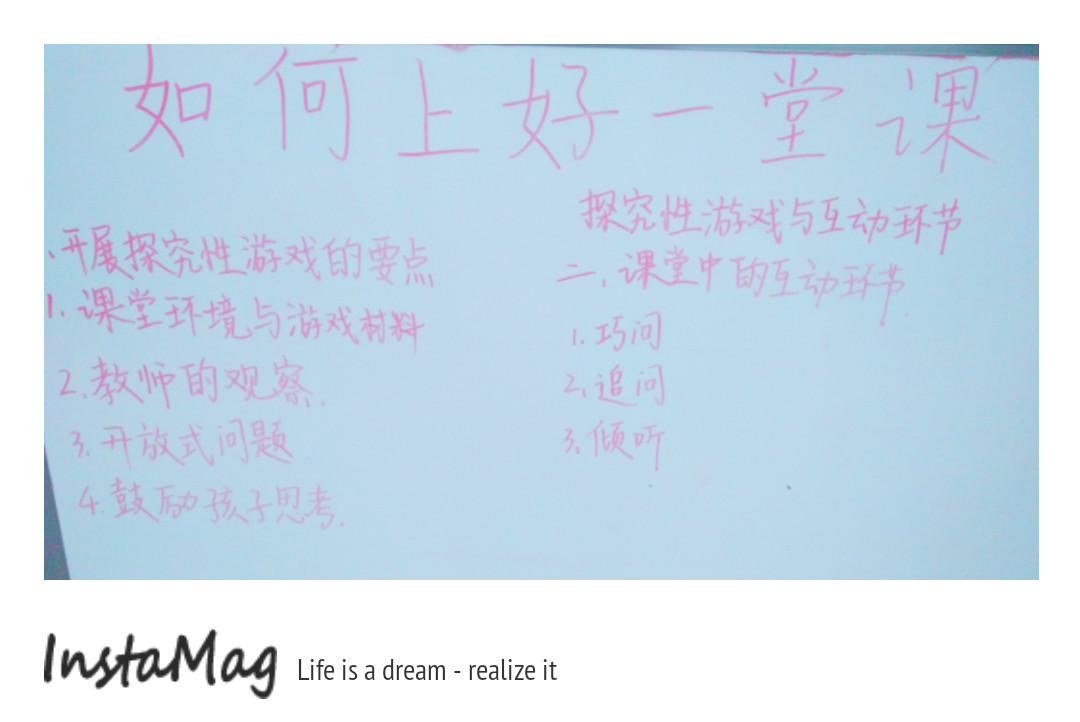 如何上好一堂课
探究性游戏与互动环节
、开展探究性游戏的要点
1.课堂环境与游戏材料
2.教师的观察.
3.开放式问题
4.鼓励孩子思考.
二、课堂中的互动环节
1.巧问
2.追问
3.倾听
InstaMag Life is a dream - realize it